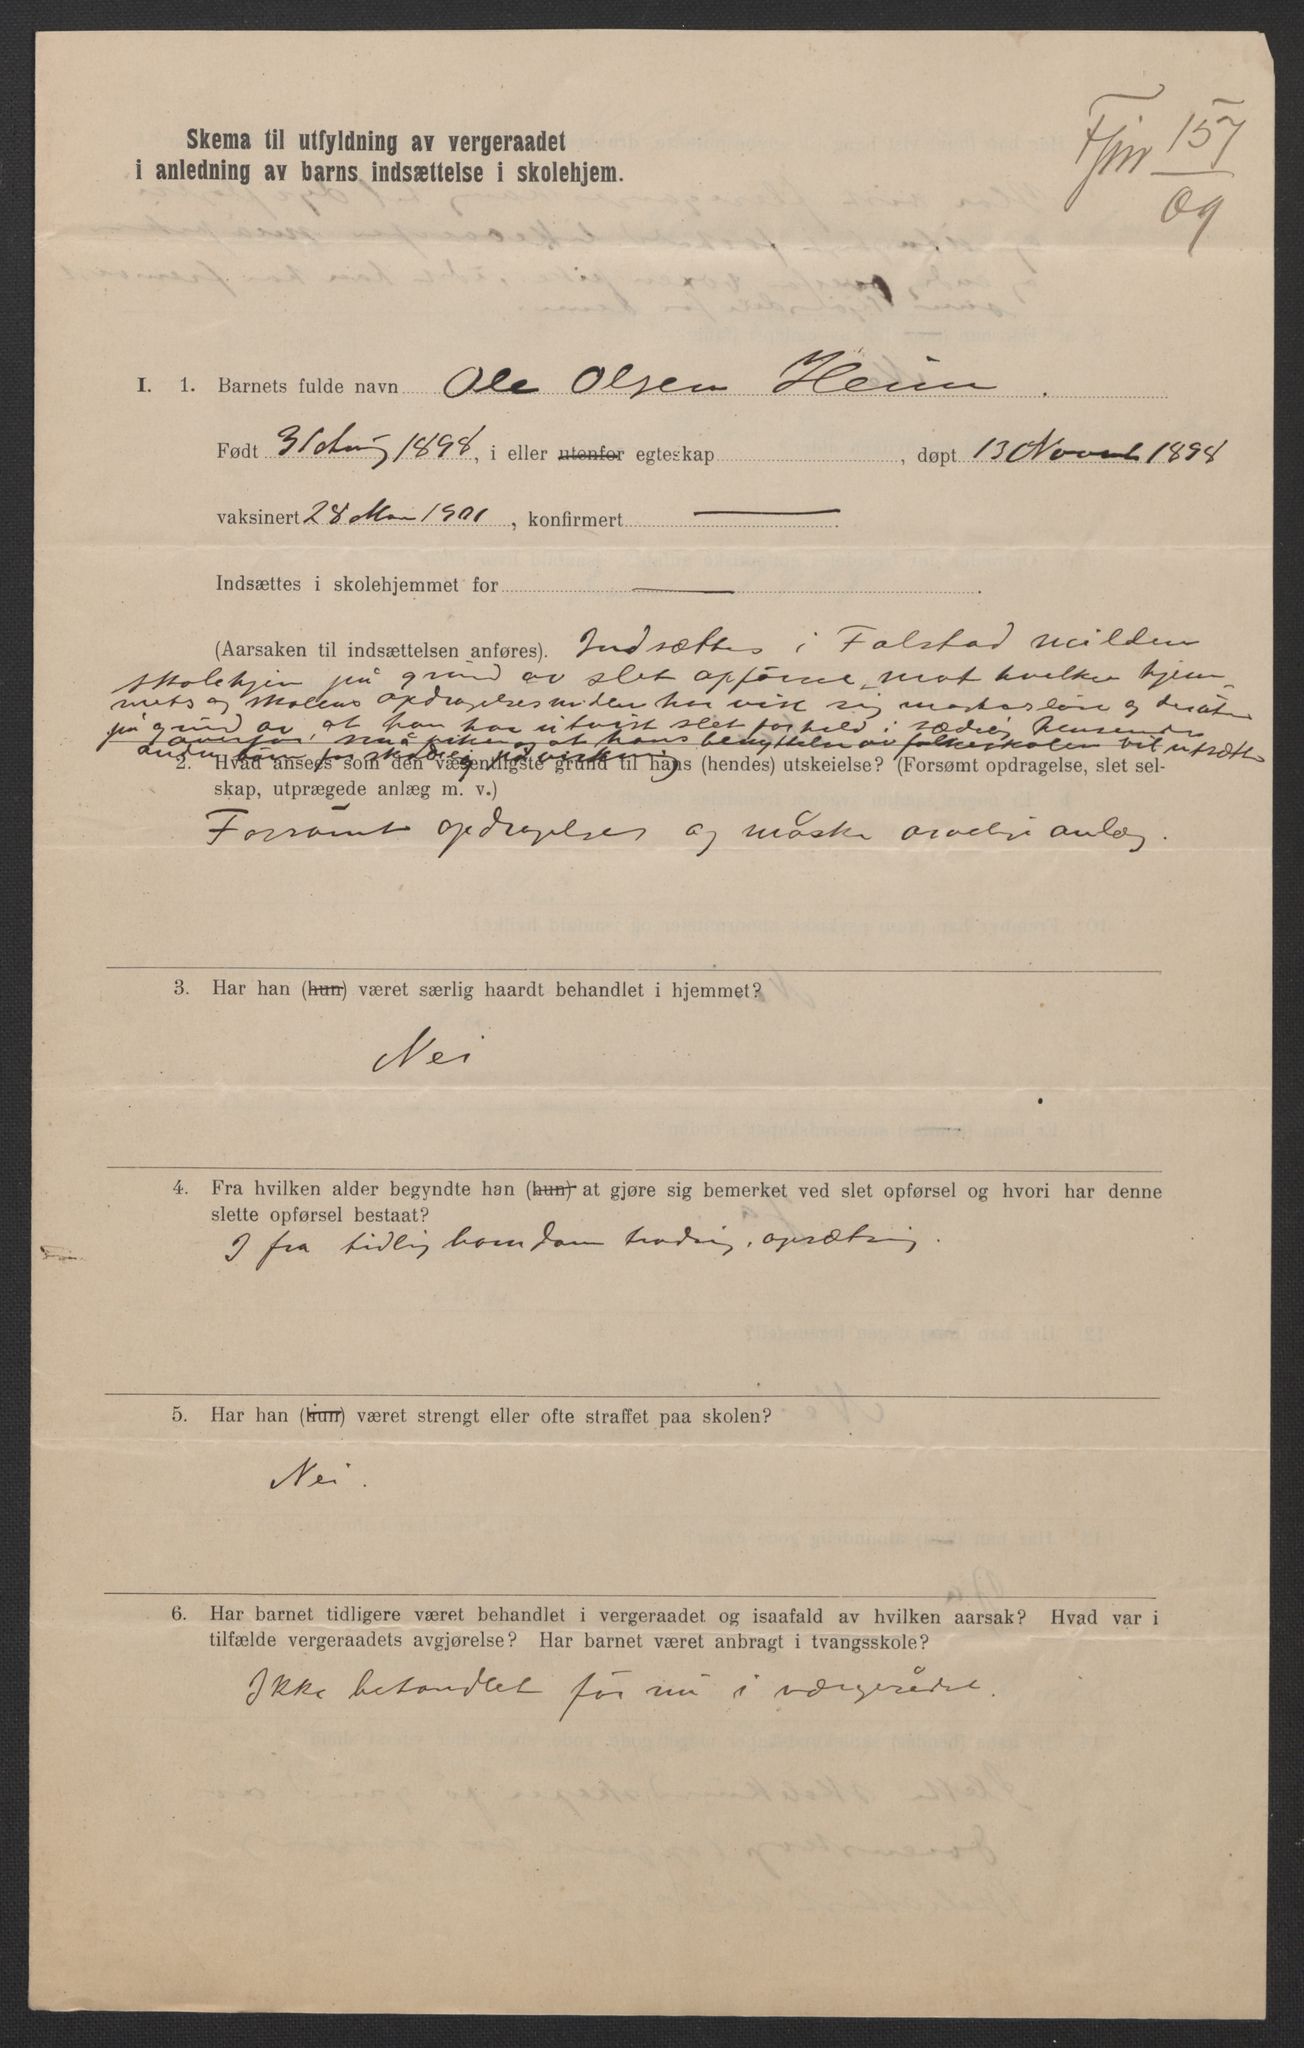 Fjnr 157
09
Skema til utfyldning av vergeraadet
i anledning av barns indsættelse i skolehjem.
I. 1. Barnets fulde navn Ole Olsen Heim.
Født 31 Aug 1898, i eller utenfor egteskap , døpt 13 Novemb 1898
vaksinert 28 Mai 1901, konfirmert —
Indsættes i skolehjemmet for —
(Aarsaken til indsættelsen anføres). Indsættes i Falstad mildere
skolehjem på grund av slet opførsel, mot hvilken hjem-
mets og skolens opdragelsesmidler har vist sig magtesløse og desuten
på grund av, at han har utvist slet forhold i sædelig henseende
overfor små piker og at hans benyttelse av folkeskolen vil utsætte
andre børn for skadelig påvirkning
2. Hvad ansees som den væsentligste grund til hans (hendes) utskeielse? (Forsømt opdragelse, slet sel-
skap, utprægede anlæg m. v.)
Forsømt opdragelse og måske arvelige anlæg.
3. Har han (hun) været særlig haardt behandlet i hjemmet?
Nei
4. Fra hvilken alder begyndte han (hun) at gjøre sig bemerket ved slet opførsel og hvori har denne
slette opførsel bestaat?
I fra tidlig barndom trodsig, opsætsig.
5. Har han (hun) været strengt eller ofte straffet paa skolen?
Nei.
6. Har barnet tidligere været behandlet i vergeraadet og isaafald av hvilken aarsak? Hvad var i
tilfælde vergeraadets avgjørelse? Har barnet været anbragt i tvangsskole?
Ikke behandlet før nu i værgerådet.